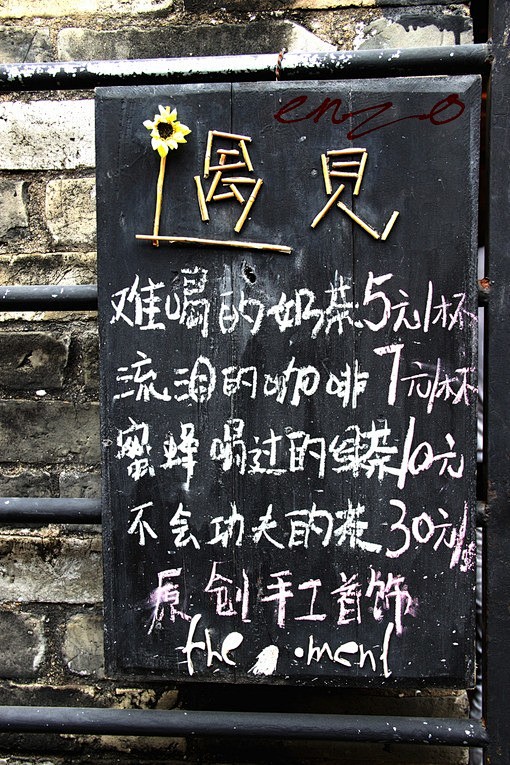 enzo
遇見
难喝的奶茶5元/杯
流泪的咖啡7元/杯
蜜蜂喝过的绿茶10元
不会功夫的茶30元/
原创手工首饰
the moment